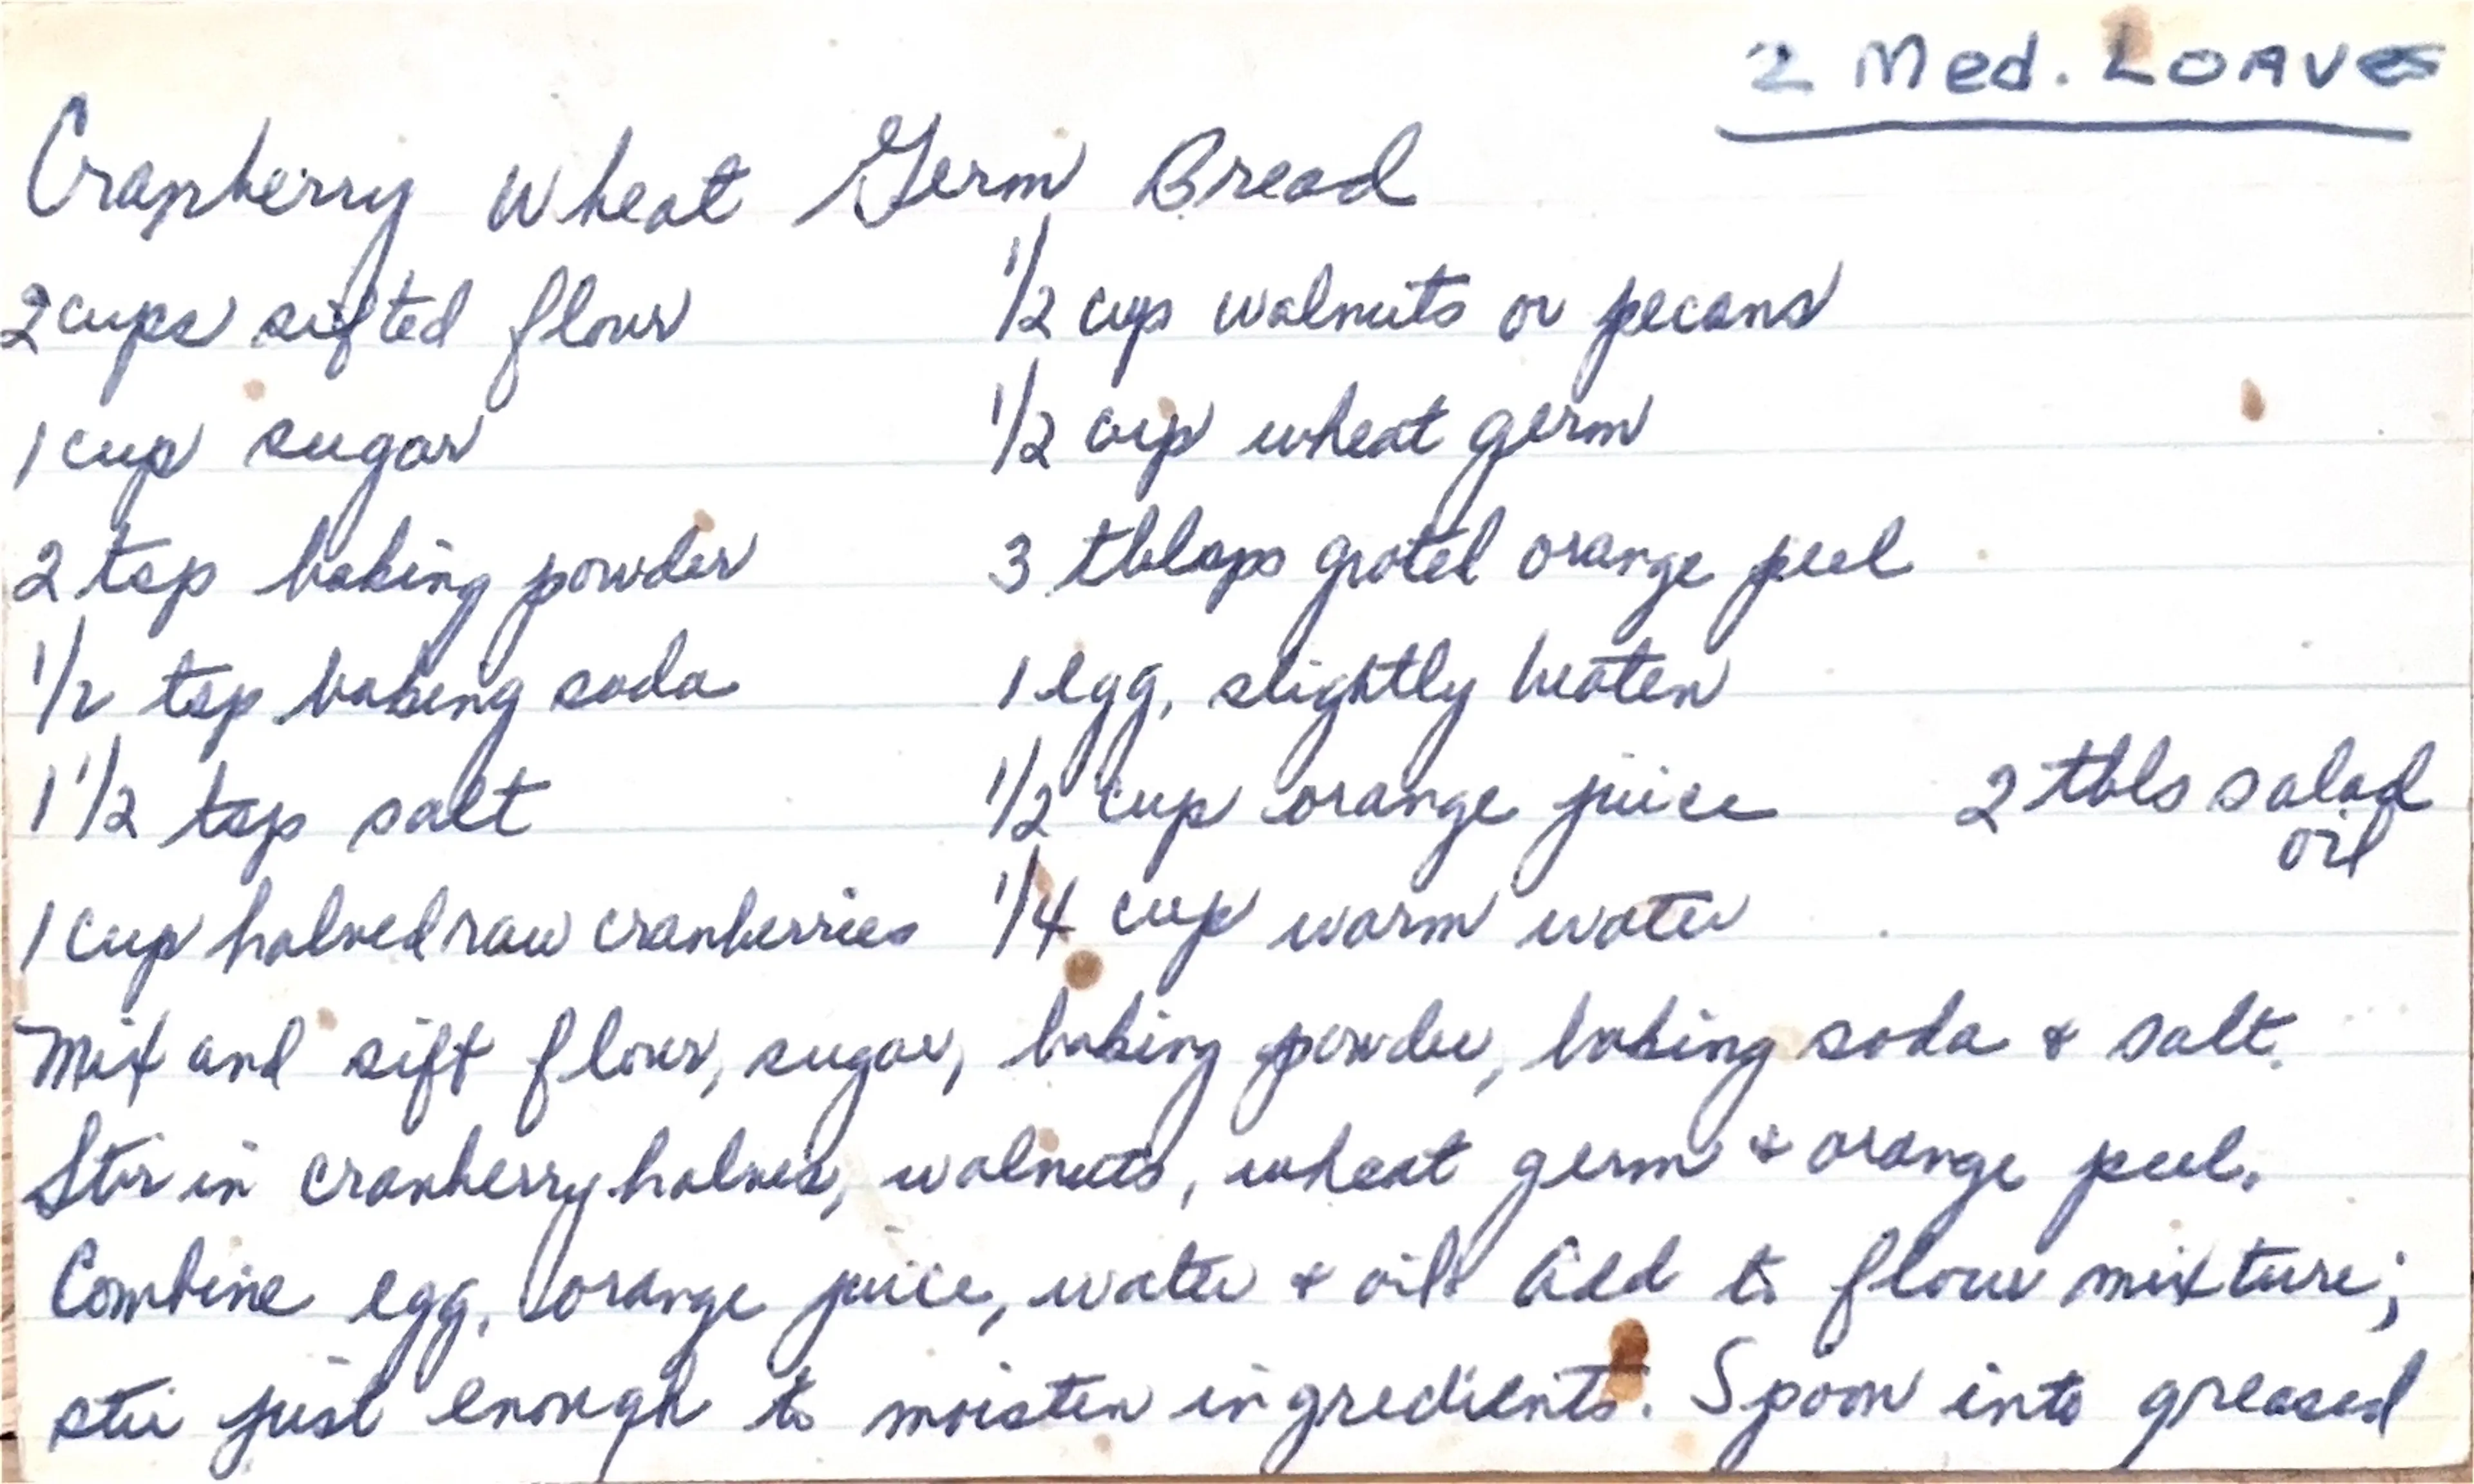 2 Med. LOAVes
Cranberry Wheat Germ Bread
2 cups sifted flour
1/2 cup walnuts or pecans
1 cup sugar
1/2 cup wheat germ
2 tsp baking powder
3 tblsps grated orange peel
1/2 tsp baking soda
1 egg, slightly beaten
1 1/2 tsp salt
1/2 cup orange juice
2 tbls salad
oil
1 cup halved raw cranberries
1/4 cup warm water
Mix and sift flour, sugar, baking powder, baking soda & salt.
Stir in cranberry halves, walnuts, wheat germ & orange peel.
Combine egg, orange juice, water & oil. Add to flour mixture;
stir just enough to moisten ingredients. Spoon into greased